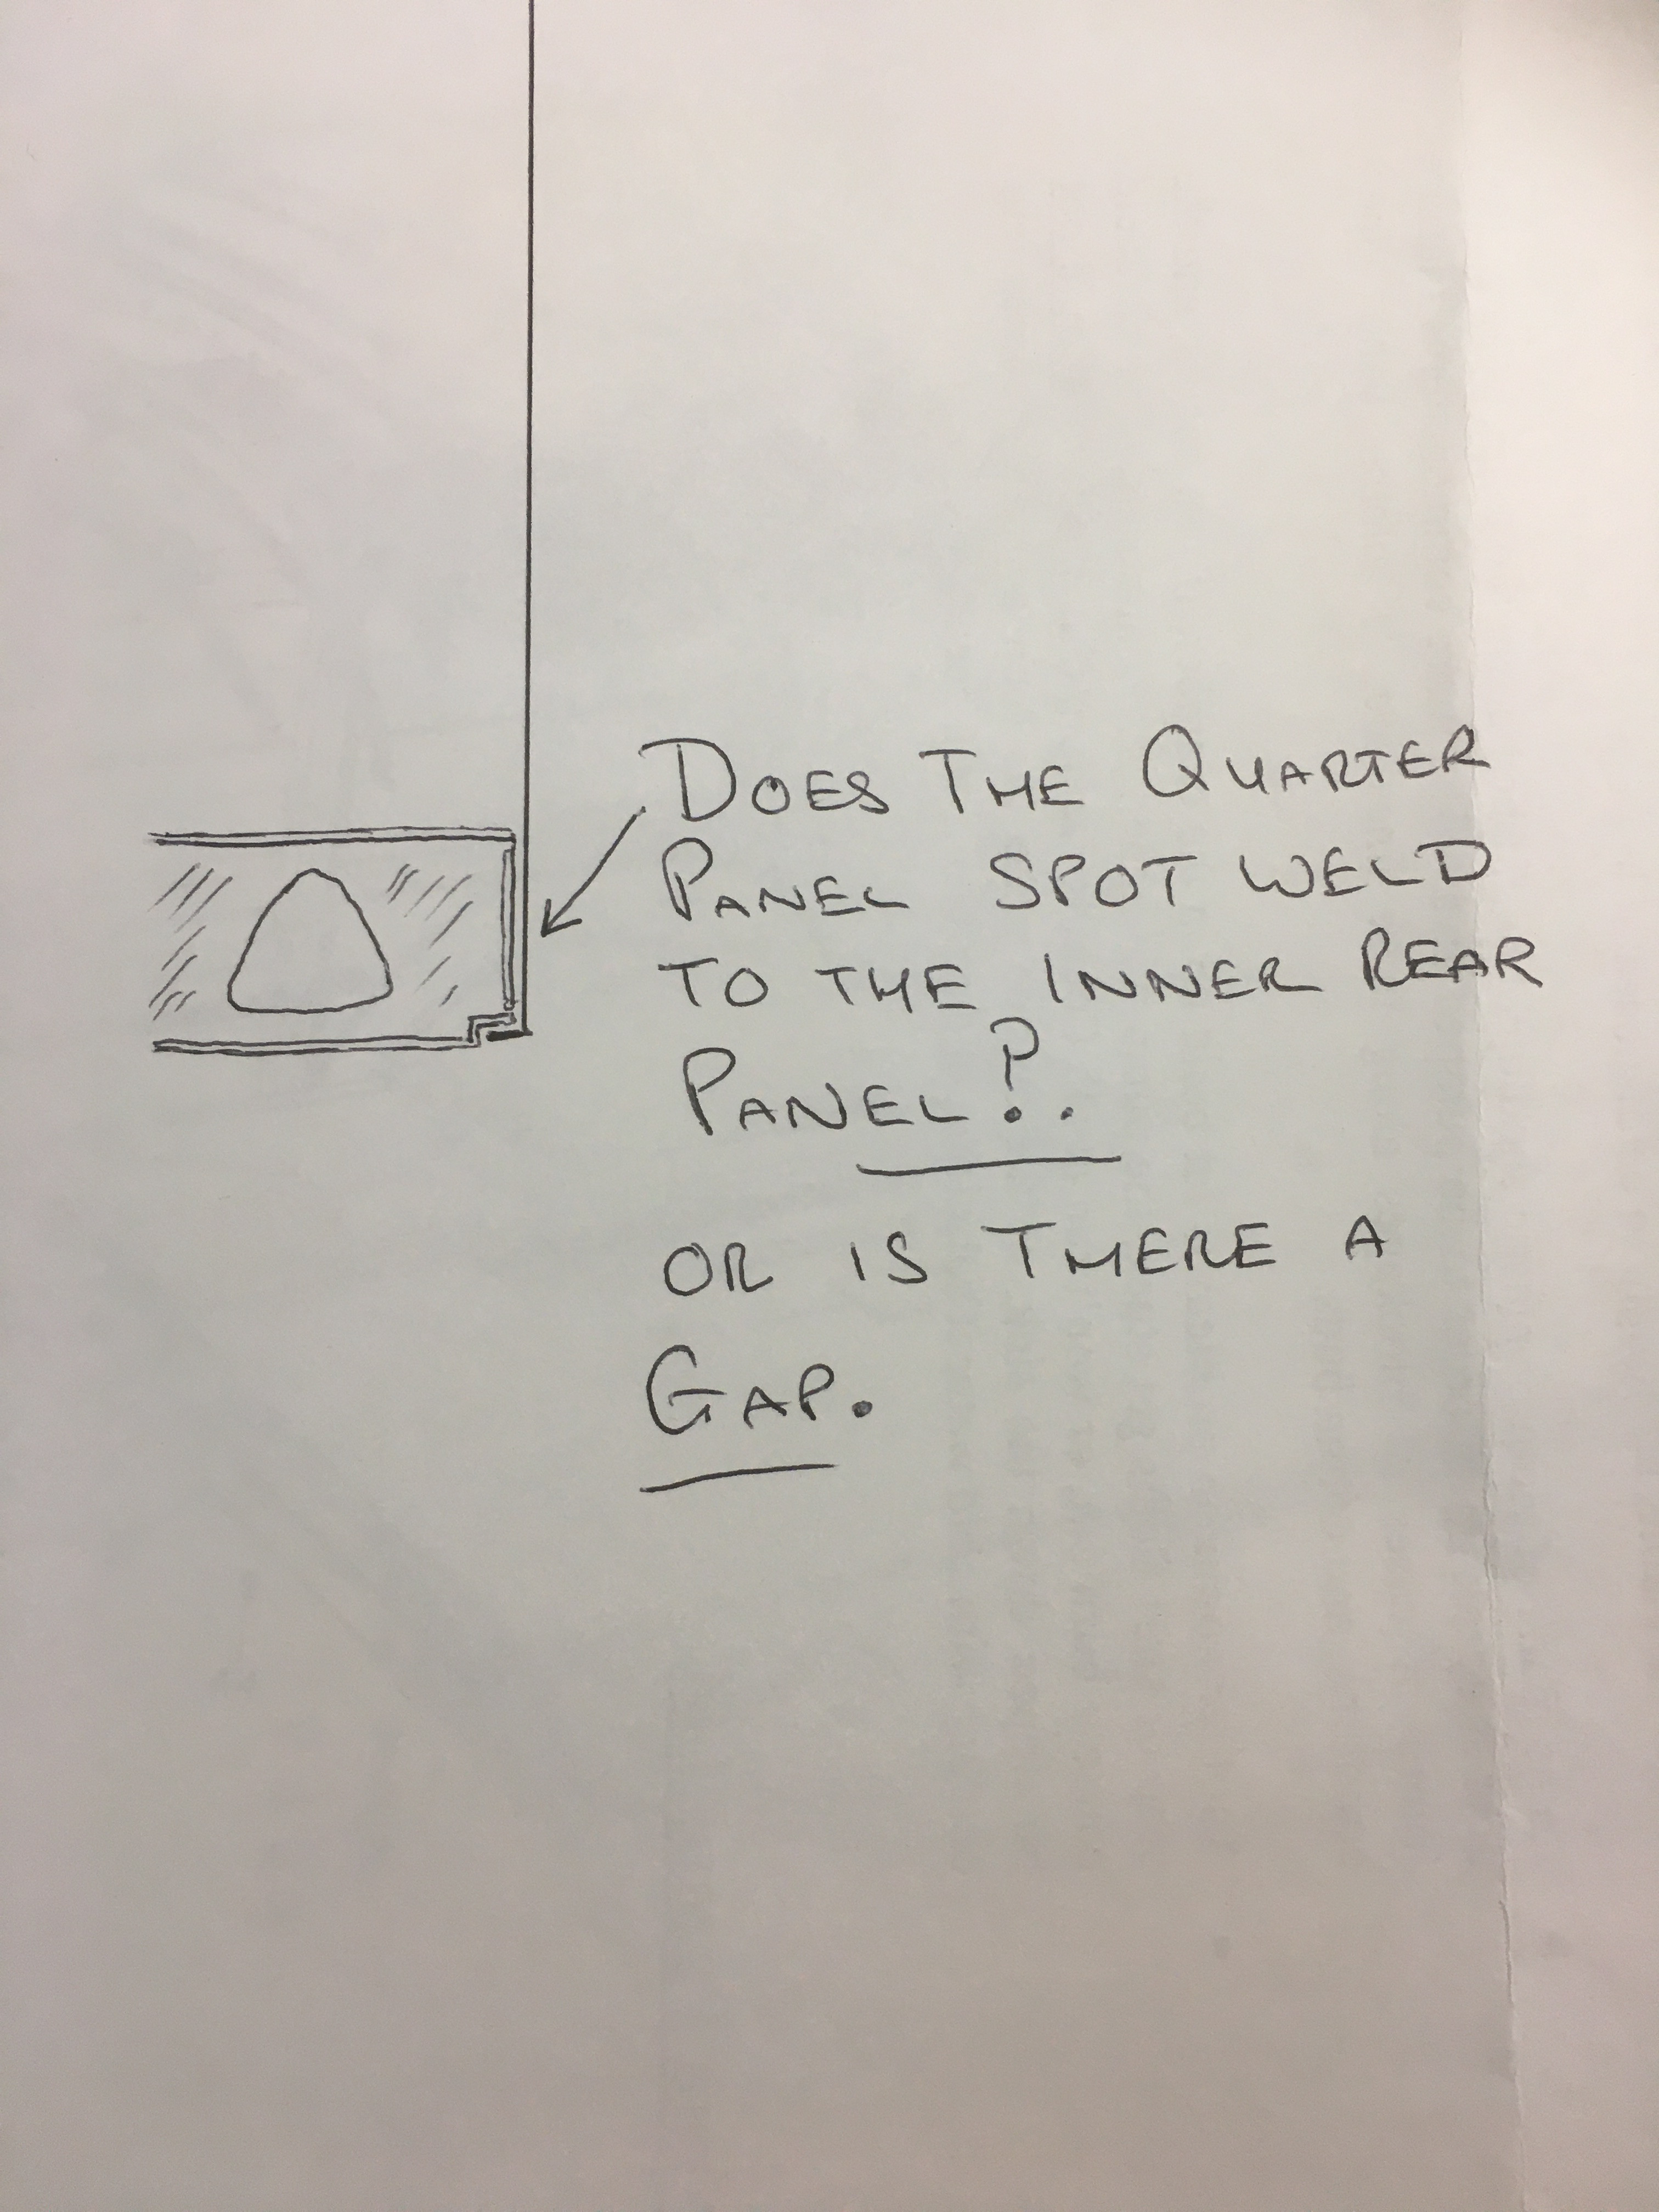 DOES THE QUARTER
PANEL SPOT WELD
TO THE INNER REAR
PANEL?.
OR IS THERE A
GAP.